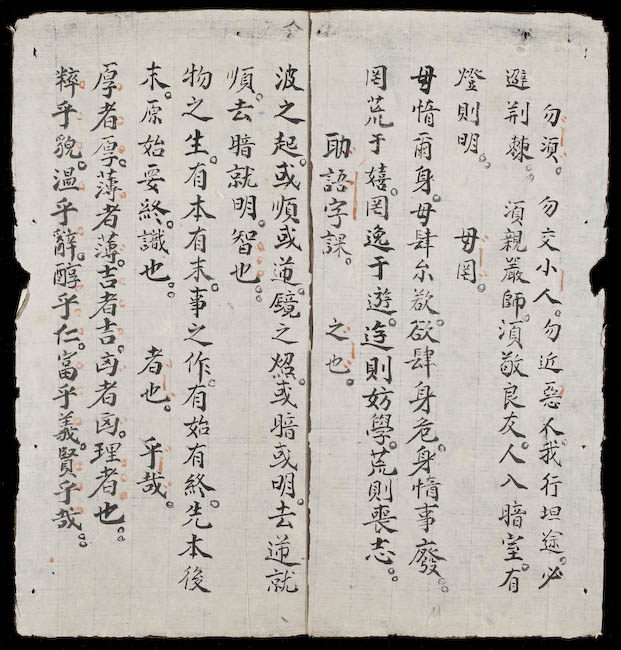 勿須。　勿交小人。勿近惡人。我行坦途。必
避荆棘。　須親嚴師。須敬良友。人入暗室。有
燈則明。　毋罔。
毋惰爾身。毋肆尔欲。欲肆身危。身惰事廢。
罔荒于嬉。罔逸于遊。遊則妨學。荒則喪志。
助語字課。　之也。
波之起。或順或逆。鏡之照。或暗或明。去逆就
順。去暗就明。智也。
物之生。有本有末。事之作。有始有終。先本後
末。原始要終。識也。　者也。　乎哉。
厚者厚。薄者薄。吉者吉。凶者凶。理者也。
粹乎貌。溫乎辭。醇乎仁。富乎義。賢乎哉。